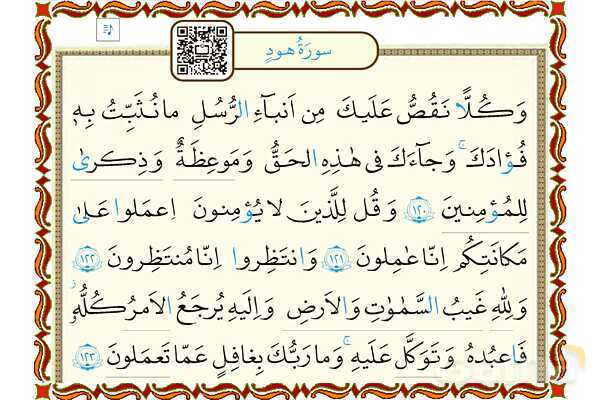 سورَةُ هودٍ
وَ كُلًّا نَقُصُّ عَلَيكَ مِن اَنبآءِ الرُّسُلِ مانُثَبِّتُ بِهٖ
فُؤادَكَ ۚ وَ جآءَكَ فی هٰذِهِ الحَقُّ وَ مَوعِظَةٌ وَ ذِكریٰ
لِلمُؤمِنینَ ﴿١٢٠﴾ وَ قُل لِلَّذینَ لایُؤمِنونَ اِعمَلوا عَلیٰ
مَكانَتِكُم اِنّا عٰمِلونَ ﴿١٢١﴾ وَ انتَظِروا اِنّا مُنتَظِرونَ ﴿١٢٢﴾
وَ لِلّٰهِ غَیبُ السَّمٰوٰتِ وَ الاَرضِ وَ اِلَیهِ یُرجَعُ الاَمرُ كُلُّهٗ
فَاعبُدهُ وَ تَوَكَّل عَلَیهِ ۚ وَ ما رَبُّكَ بِغافِلٍ عَمّا تَعمَلونَ ﴿١٢٣﴾